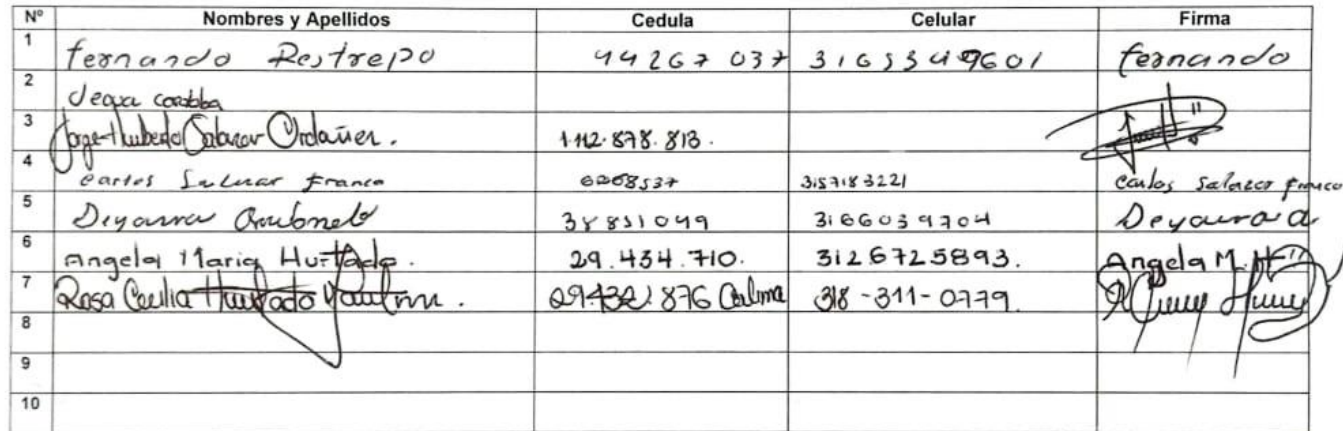 Nº Nombres y Apellidos Cedula Celular Firma
1 fernando Restrepo 94267037 3165349601 fernando
2
3 Jorge Humberto Salazar 1.112.878.813.
4 Carlos Salazar Franco 6268537 3157183221 Carlos Salazar Franco
5 Deyanira 38851049 3166039704 Deyanira
6 Angela Maria Hurtado. 29.434.710. 3126725893. Angela M. H
7 Rosa Cecilia Hurtado 29.432.876 Calima 318-311-0779
8
9
10